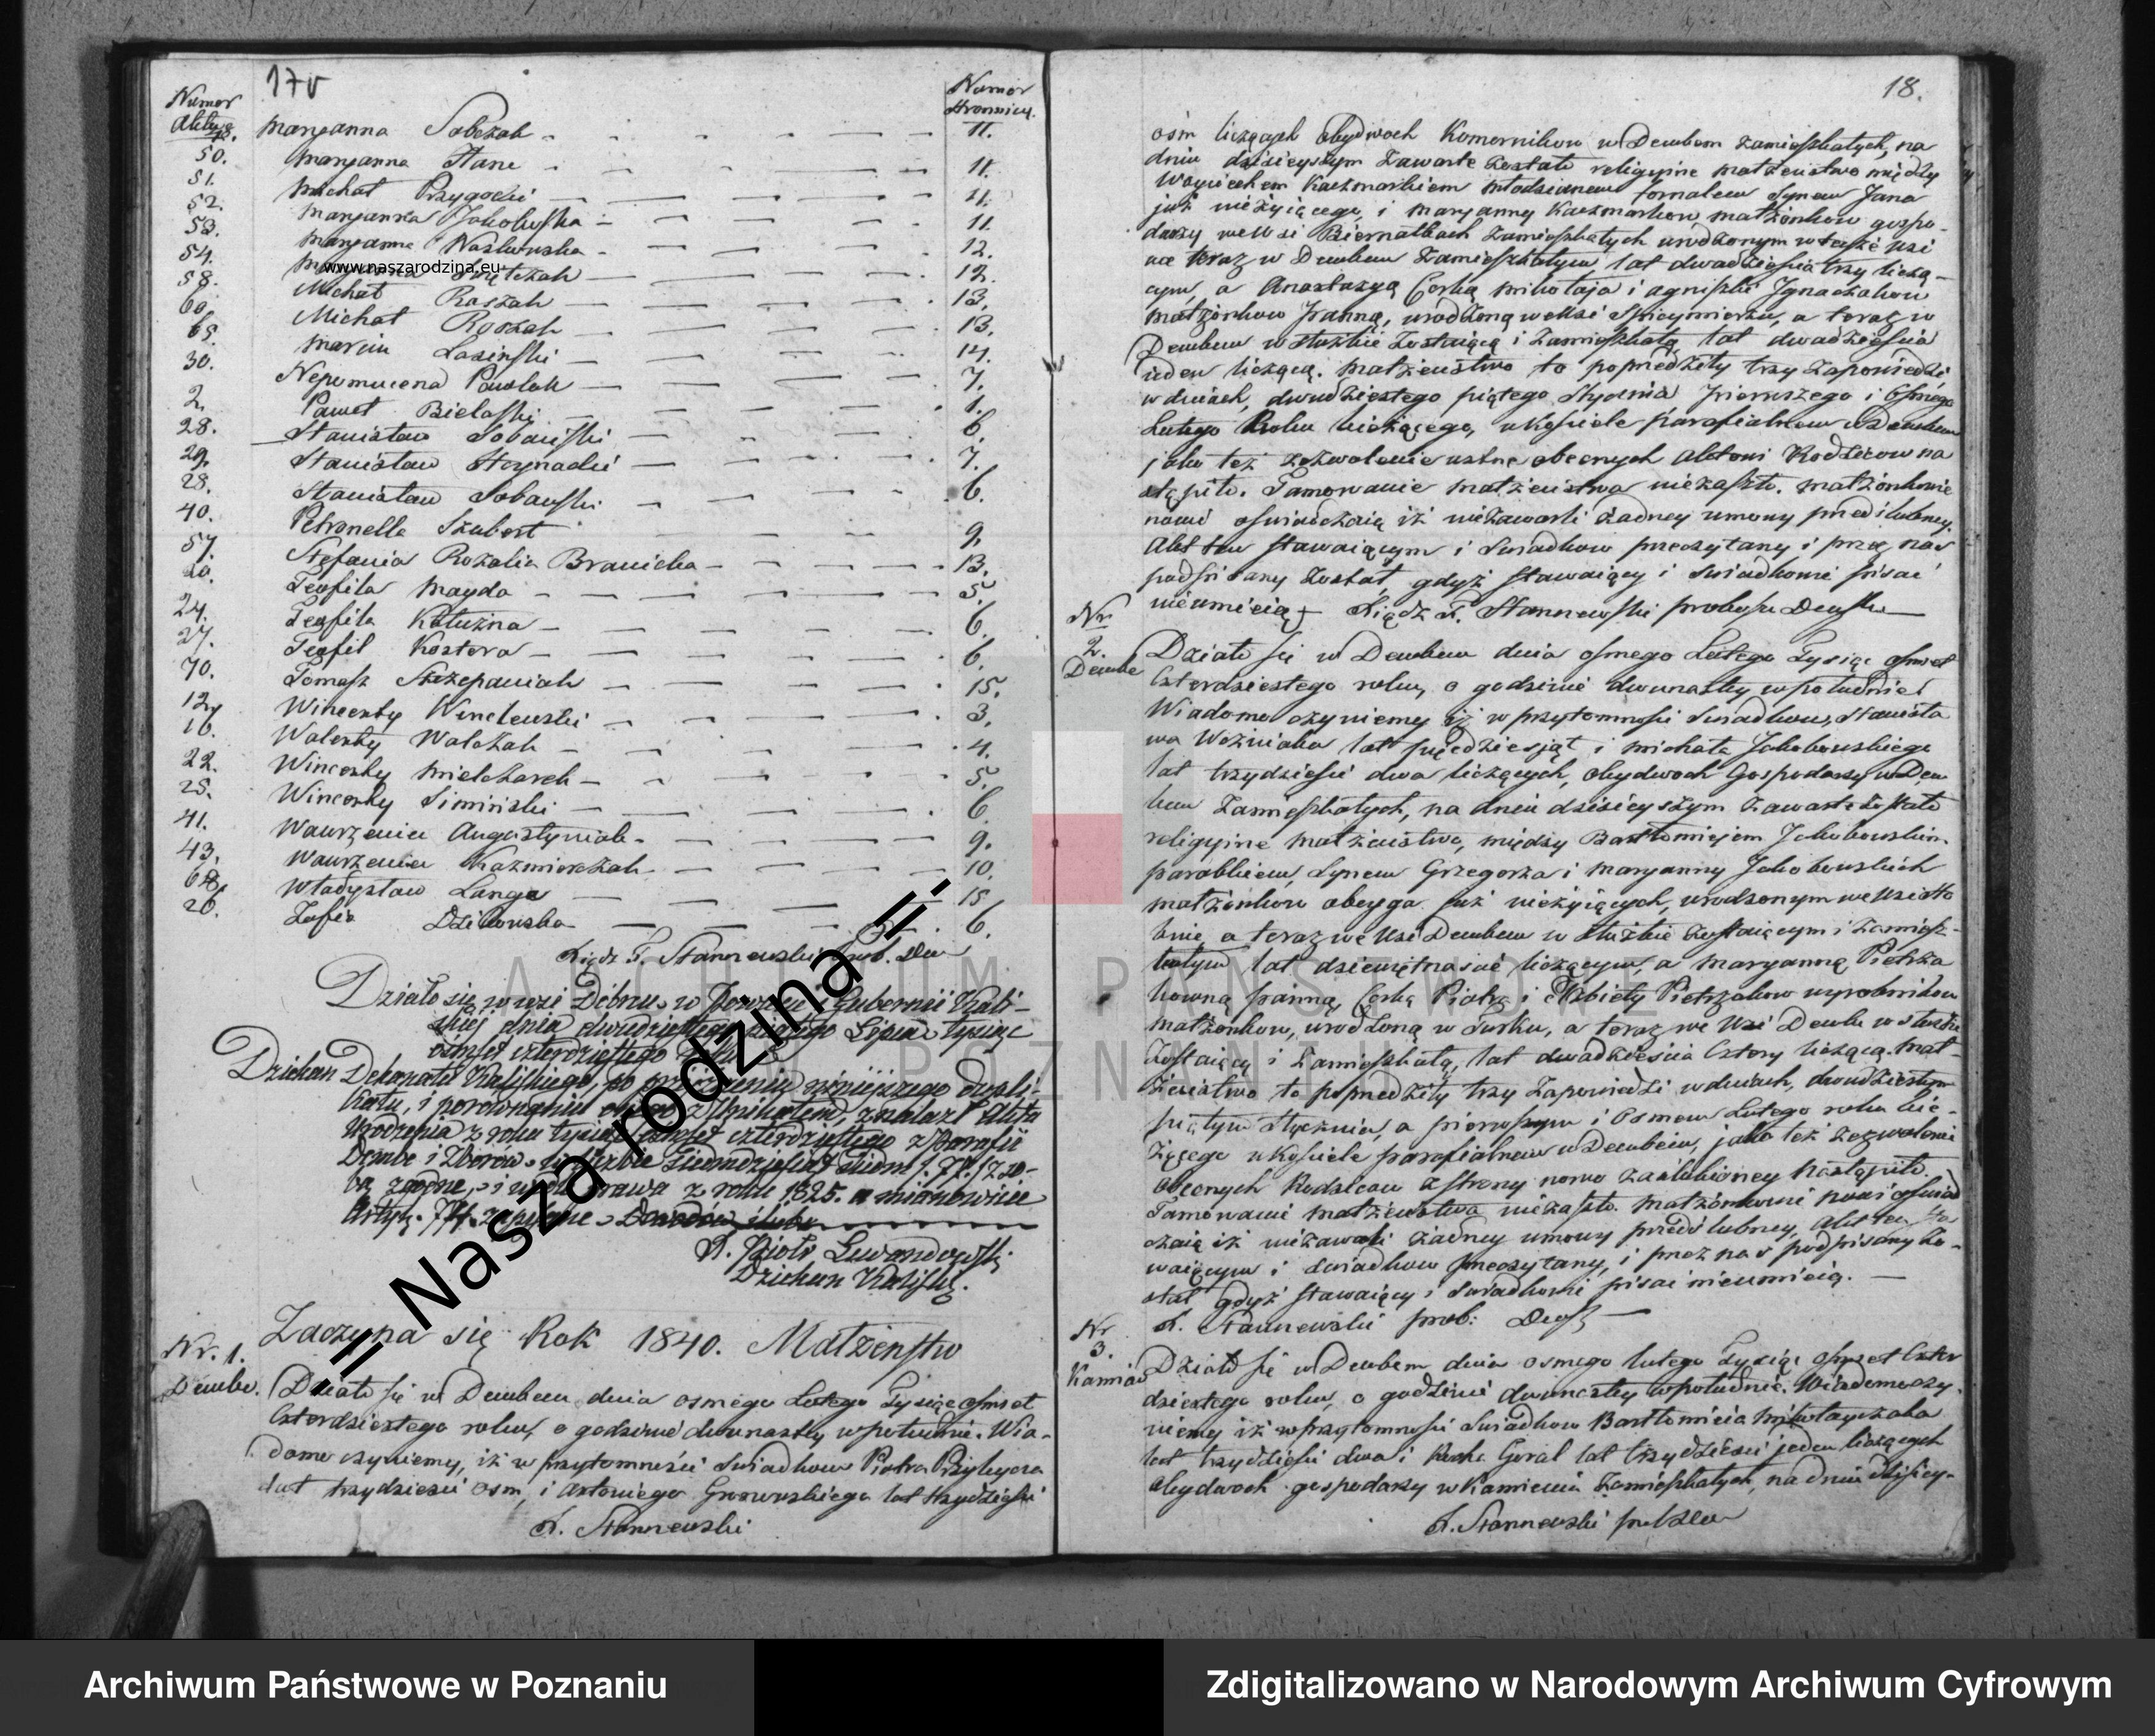 17v
Numer Aktu
Numer Stronnicy
48. Maryanna Sobczak 11.
50. Maryanna Stane 11.
51. Michał Przygocki 11.
52. Maryanna Jakobuska 11.
53. Maryanna 12.
54. 12.
58. Michał Roszak 13.
60. Michał Roszak 13.
65. Marcin Lasinski 14.
30. Nepomucena Pawlak 7.
2. Paweł Bielaski 1.
28. Stanisław Sobański 6.
29. Stanisław 7.
28. Stanisław Sobański 6.
40. Petronella Szubert 9.
57. Stefania Rozalia Branicka 13.
20. Teofila Magda 5.
24. Teofila Kałużna 6.
27. Teofil Kostera 6.
70. Tomasz Szczepaniak 15.
12. Wincenty 3.
16. Walenty Walczak 4.
22. Wincenty Mielcharek 5.
25. Wincenty Simiński 6.
41. Wawrzeniec Augustyniak 9.
43. Wawrzeniec Kazmierczak 10.
68. Władysław Lange 15
20. Zofia Dzikowska 6.
Xiądz F. Stannewski Prob. Dem
Działo się w wsi Dębnu w Powiecie Gubernii Kali-
skiej dnia dwudziestego piątego Lipca tysiąc
ośmset czterdziestego
Dziekan Dekanatu Kaliskiego, po niniejszego dupli-
katu, i porównaniu z Unikatem, znalazł Akta
Urodzenia z roku tysiąc ośmset czterdziestego z Parafii
Dembe i Zborow
zgodne, i prawa z roku 1825. a mianowicie

X. Piotr Lewandowski
Dziekan Kaliski.
Zaczyna się Rok 1840. Małżenstw
Nr. 1.
Dembe.
Działo się w Dembem dnia osmego Lutego Tysiąc ośmset
Czterdziestego roku, o godzinie dwunastey w południe. Wia-
domo czyniemy, iż w przytomności Swiadkow Piotra Przybycza
lat trzydziesci osm, i Antoniego Gurowskiego lat trzydzieści
X. Stannewski
18.
ośm liczących obydwoch Komornikow w Dembem zamieszkałych, na
dniu dzisieyszym zawarte zostało religijne małżeństwo między
Woyciechem Kaczmarkiem młodzianem fornalem Synem Jana
już nieżyiącego, i Maryanny Kaczmarkow małżonkow gospo-
darzy we wsi Biernatkach zamieszkałych urodzonym w teyże wsi
a teraz w Dembem zamieszkałym lat dwadzieścia trzy liczą-
cym, a Anastazyą Corką Mikołaja i Agniszki Ignaczakow
małżonkow Panną, urodzoną we wsi Spicymierzu, a teraz w
Dembem w służbie zostaiącą i zamieszkałą lat dwadzieścia
jeden liczącą. Małżeństwo to poprzedziły trzy zapowiedzi
w dniach, dwudziestego piątego Stycznia Pierwszego i Osmego
Lutego Roku bieżącego, w Kościele parafialnem w Dembem
jako też zezwolenie ustne obecnych Aktowi Rodzicow na
stąpiło. Tamowanie małżeństwa niezaszło. Małżonkowie
nowi oświadczaią iż niezawarli żadney umowy przedślubney.
Akt ten stawaiącym i Swiadkow przeczytany i przez nas
podpisany został, gdyż stawaiący i Swiadkowie pisać
nieumieią Xiądz F. Stannewski proboszcz Dembski
Nr
2.
Dembe
Działo się w Dembem dnia osmego Lutego Tysiąc ośmset
Czterdziestego roku, o godzinie dwunastey w południe
Wiadomo czyniemy iż w przytomności Swiadkow, Stanisła
wa Wozniaka lat pięćdziesiąt i Michała Jakobowskiego
lat trzydzieści dwa liczących, obydwoch Gospodarzy w Dem
bem zamieszkałych, na dniu dzisieyszym zawarte zostało
religijne małżeństwo, między Bartłomiejem Jakobowskim
parobkiem, Synem Grzegorza i Maryanny Jakobowskich
małżonkow obeyga już nieżyiących, urodzonym we wsi
a teraz we wsi Dembem w służbie zostaiącym i zamiesz-
kałym lat dziewiętnaście liczącym, a Maryanną Pietrza
kowną panną, Corką Piotra i Elżbiety Pietrzakow wyrobnikow
małżonkow, urodzoną w Turku, a teraz we wsi Dembe w służbie
zostaiącą i zamieszkałą, lat dwadzieścia Cztery liczącą. Mał-
żeństwo to poprzedziły trzy zapowiedzi w dniach, dwudziestym
piątym Stycznia, a pierwszym i Osmem Lutego roku bie-
żącego w Kościele parafialnem w Dembem, jako też zezwolenie
obecnych Rodzicow z strony nowo zaślubioney nastąpiło.
Tamowanie małżeństwa niezaszło. Małżonkowie nowi oświad
czaią iż niezawarli żadney umowy przedślubney, Akt ten sta
waiącym i Swiadkow przeczytany, i przez nas podpisany zo-
stał gdyż stawaiący i Swiadkowie pisać nieumieią.
X. Stannewski prob: Demb
Nr
3.
Kamień
Działo się w Dembem dnia osmego lutego Tysiąc ośmset Czter
dziestego roku, o godzinie dwunastey w południe. Wiadomo czy-
niemy iż w przytomności Swiadkow Bartłomieia Mikołayczaka
lat trzydzieści dwa i Rocha Goral lat trzydzieści jeden liczących
obydwoch gospodarzy w Kamieniu zamieszkałych, na dniu dzisiey-
X. Stannewski prob Dem
www.naszarodzina.eu
.:|| Nasza rodzina ||:.
ARCHIWUM PAŃSTWOWE
W POZNANIU
Archiwum Państwowe w Poznaniu
Zdigitalizowano w Narodowym Archiwum Cyfrowym